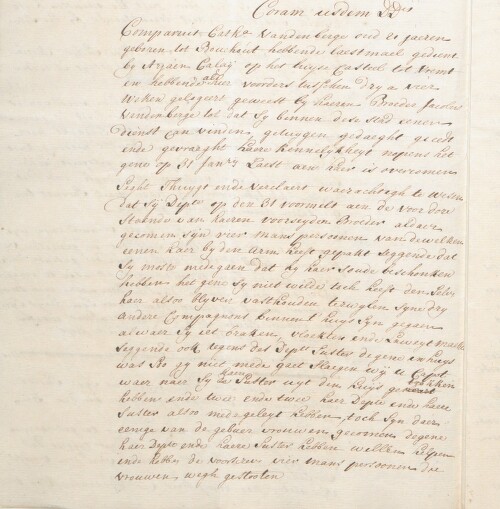 Coram iisdem DD^es
Compareert Cath^a Vandenberge oud 21 jaeren
geboren tot Bouchaut hebbende laestmael gedient
by Arjaen op het huyse Casteel tot
en hebbende als voorders tusschen dry a vier
Weken gelogeert geweest by haeren Broeder Jacobus
Vandenberge tot dat sy binnen dese stad eenen
dienst can vinden, getuygen gedaeght
ende gevraeght haere kennelykheyt nopens het
gene op 31 Jan^ry Laest aen haer is overcomen
Seght Thuygt ende verclaert waerachtigh te wesen
dat Sy Dep^te op den 31 voormelt aen de voordeure
Staende van haeren voorseyden Broeder aldaer
gecomen syn vier mans persoonen van de welken
eenen haer by den arm heeft gepakt seggende dat
sy moste medegaen dat hy haer soude beschonken
hebben het gene sy niet wilde toch heeft den selven
haer alsoo blyven vasthouden terwylen syne dry
andere Compagnons binnen t huys syn gegaen
alwaer sy iet braken, vloekten ende Leweyt maekten
seggende ook tegens des Dep^te Suster degene in huys
was Soo gy niet mede gaet slaegen wy u Capot
waer naer sy haere Suster uyt den huys getrokken
hebben ende twee ende twee haer Dep^te ende haere
Suster alsoo medegeleyt hebben, toch syn daer
eenige van de gebuer vrouwen gecomen degene
haer Dep^te ende haere Suster hebben willen helpen
ende hebben de voorschreven vier mans persoonen die
vrouwen wegh gestooten